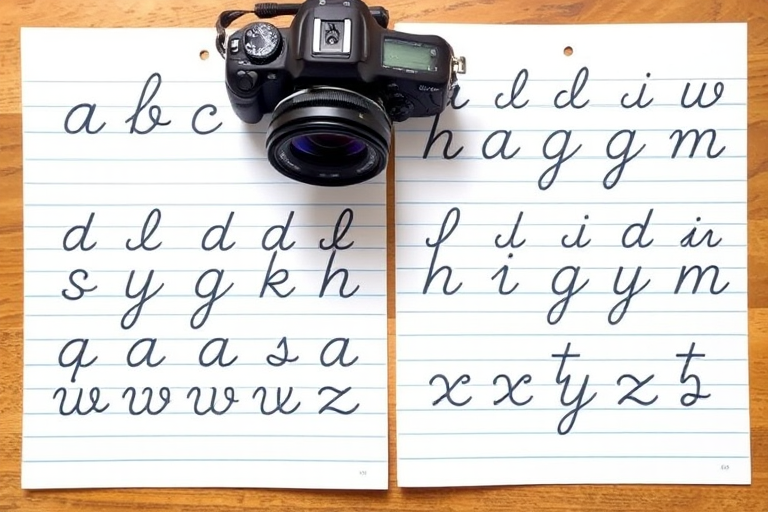 a b c
d l d d l
s y g k h
q a a s a
w w w u z
l d i w
h a g g m
l d i d ir
h i g y m
x x y z